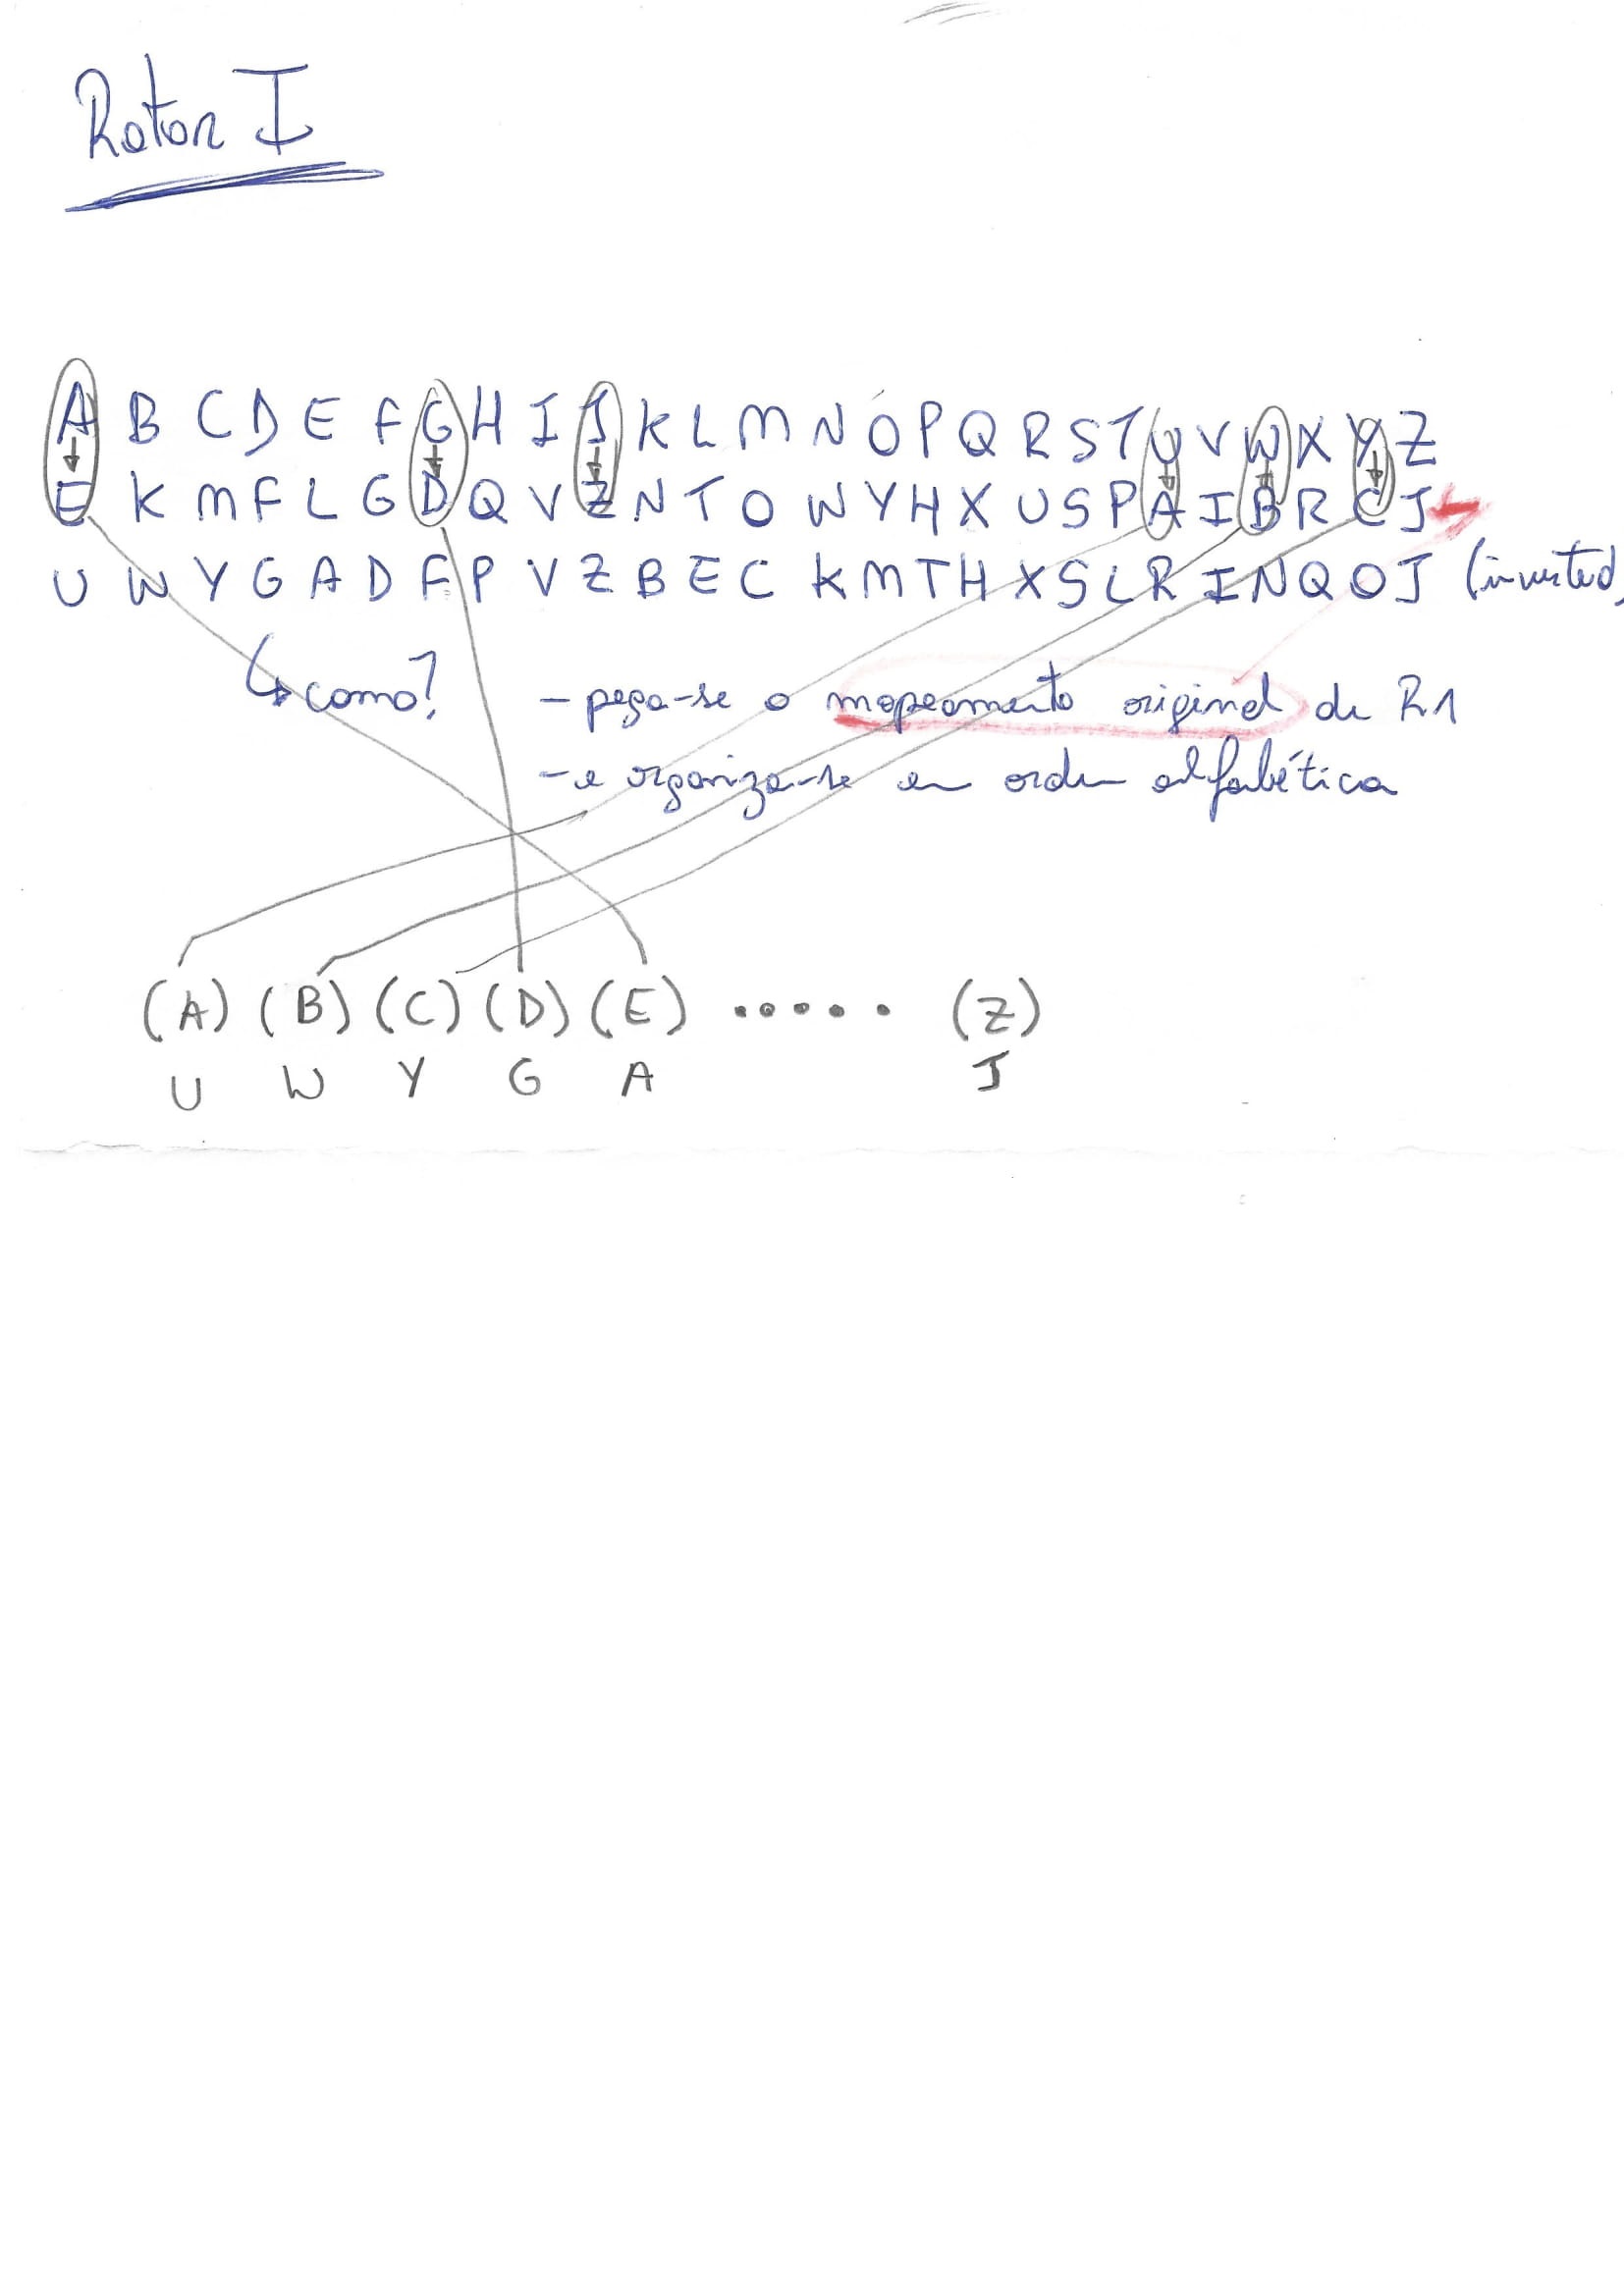 Rotor I
A B C D E F G H I J K L M N O P Q R S T U V W X Y Z
E K M F L G D Q V Z N T O W Y H X U S P A I B R C J
U W Y G A D F P V Z B E C K M T H X S L R I N Q O J (inverted)
↳ como? - pega-se o mapeamento original de R1
- e organiza-se em ordem alfabética
(A) (B) (C) (D) (E) ..... (Z)
U W Y G A J